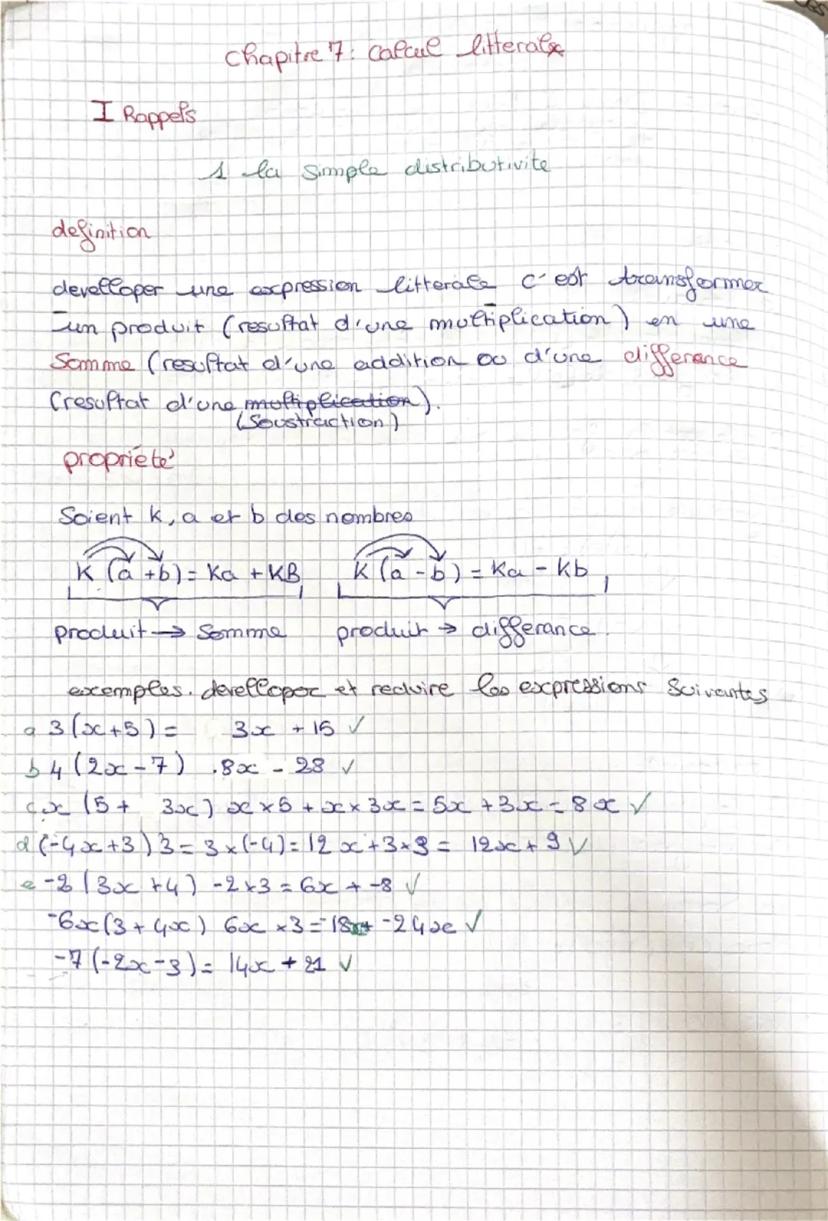 Chapitre 7: calcul litterale
I Rappels
1 la simple distributivite
definition
develloper une expression litterale c'est transformer
un produit (resultat d'une multiplication) en une
Somme (resultat d'une addition ou d'une differance
(resultat d'une multiplication).
(Soustraction)
propriété
Soient k, a et b des nombres
K (a +b) = Ka + KB K (a - b) = Ka - kb ,
produit → Somme produit → differance.
exemples. develloper et reduire les expressions Suivantes
a 3(x+5) = 3x + 15 ✓
b 4 (2x - 7) .8x - 28 ✓
c x (5 + 3x) x × 5 + x × 3x = 5x + 3x = 8x ✓
d (-4x+3) 3 = 3 × (-4) = 12 x + 3 × 3 = 12x + 9 ✓
e -2 (3x + 4) -2 × 3 = 6x + -8 ✓
-6x (3 + 4x) 6x × 3 = -18x + -24x ✓
-7 (-2x - 3) = 14x + 21 ✓